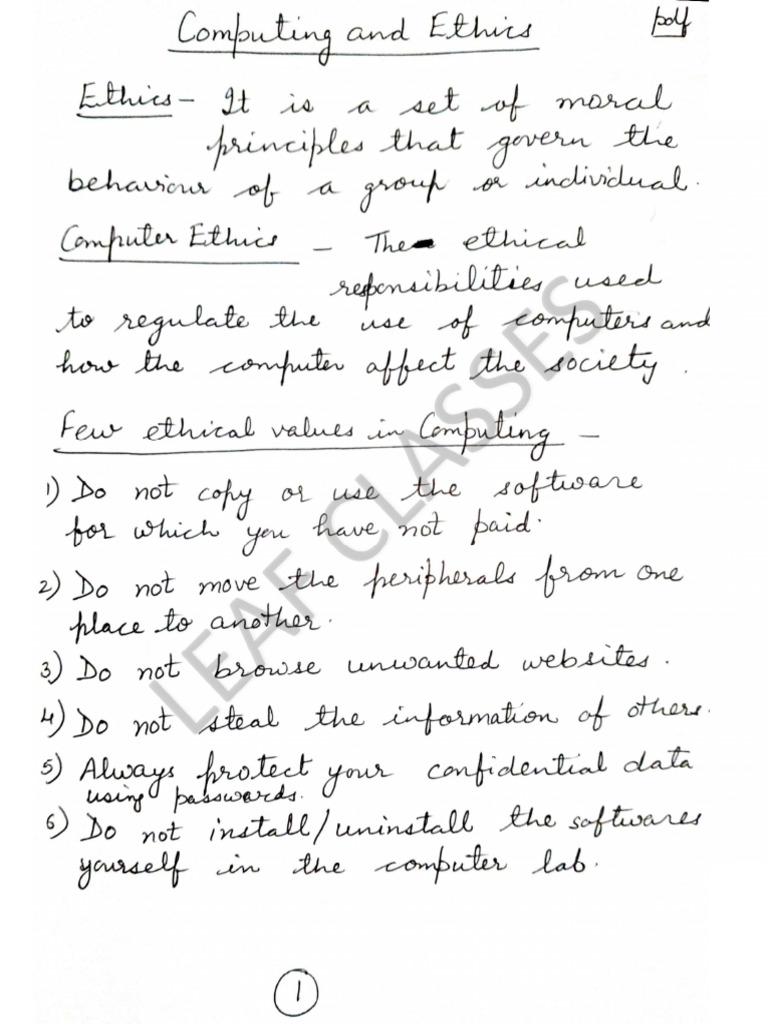 Computing and Ethics
pdf
Ethics - It is a set of moral
principles that govern the
behaviour of a group or individual.
Computer Ethics - The ethical
responsibilities used
to regulate the use of computers and
how the computer affect the society.
Few ethical values in Computing -
1) Do not copy or use the software
for which you have not paid.
2) Do not move the peripherals from one
place to another.
3) Do not browse unwanted websites.
4) Do not steal the information of others.
5) Always protect your confidential data
using passwards.
6) Do not install/uninstall the softwares
yourself in the computer lab.
LEAF CLASSES
1